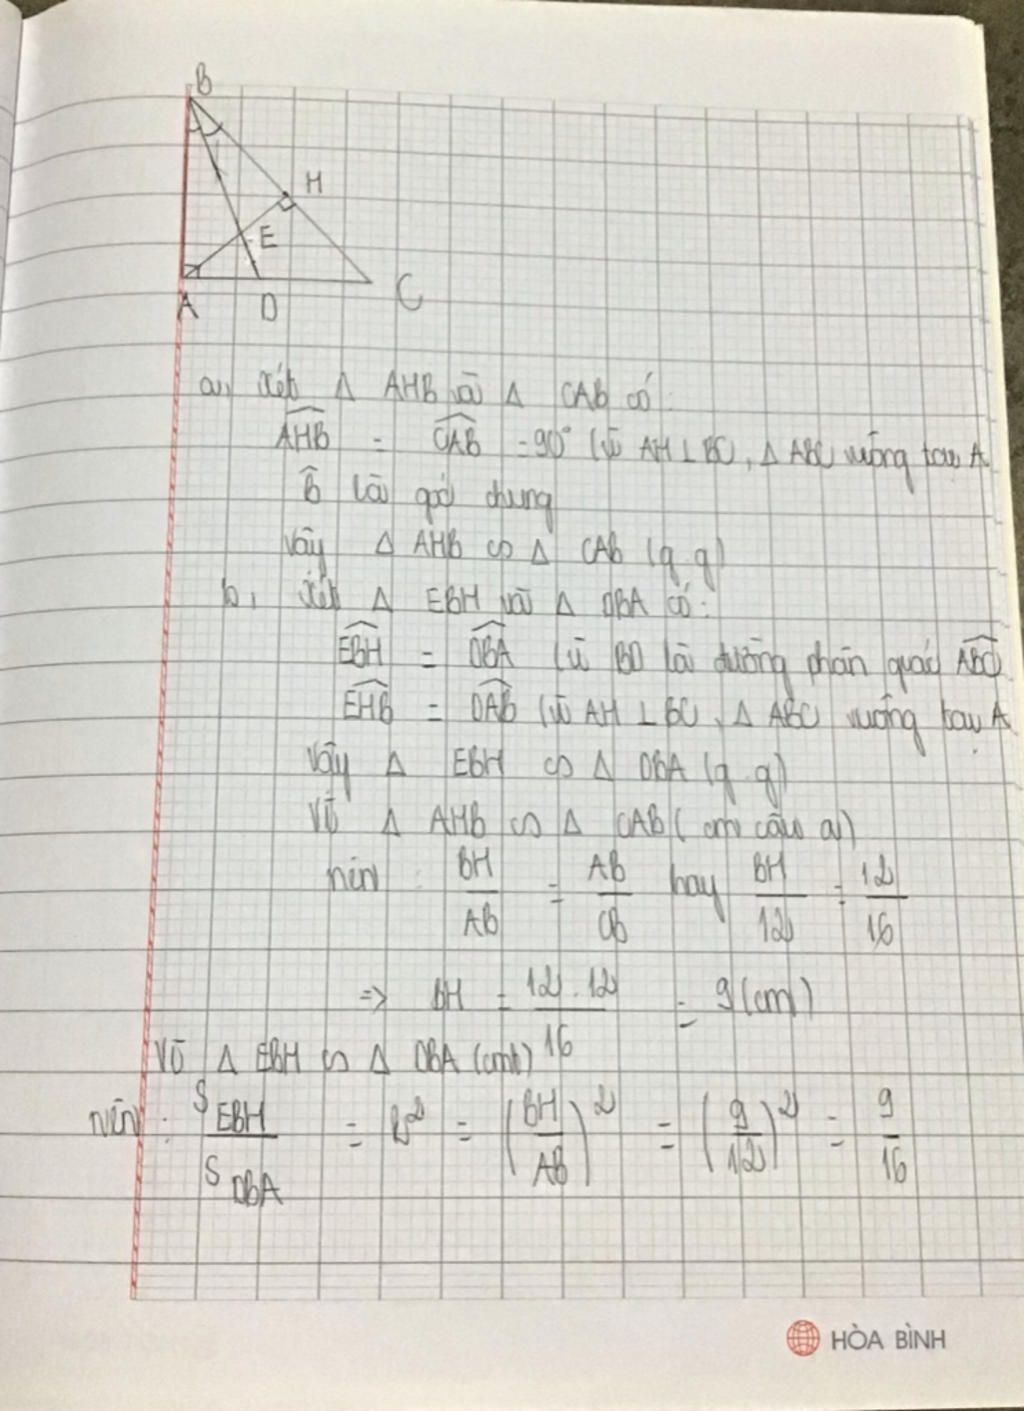 B
H
E
A D C
a, Xét Δ AHB và Δ CAB có:
AHB = CAB = 90° (vì AH ⊥ BC, Δ ABC vuông tại A
B̂ là góc chung
Vậy Δ AHB ∽ Δ CAB (g.g)
b, Xét Δ EBH và Δ DBA có:
EBH = DBA (vì BD là đường phân giác ABC
EHB = DAB (vì AH ⊥ BC, Δ ABC vuông tại A
Vậy Δ EBH ∽ Δ DBA (g.g)
Vì Δ AHB ∽ Δ CAB (cm câu a)
nên: BH/AB = AB/CB hay BH/12 = 12/16
=> BH = 12.12/16 = 9(cm)
Vì Δ EBH ∽ Δ DBA (cmt)
nên: S EBH/S DBA = k² = (BH/AB)² = (9/12)² = 9/16
HÒA BÌNH